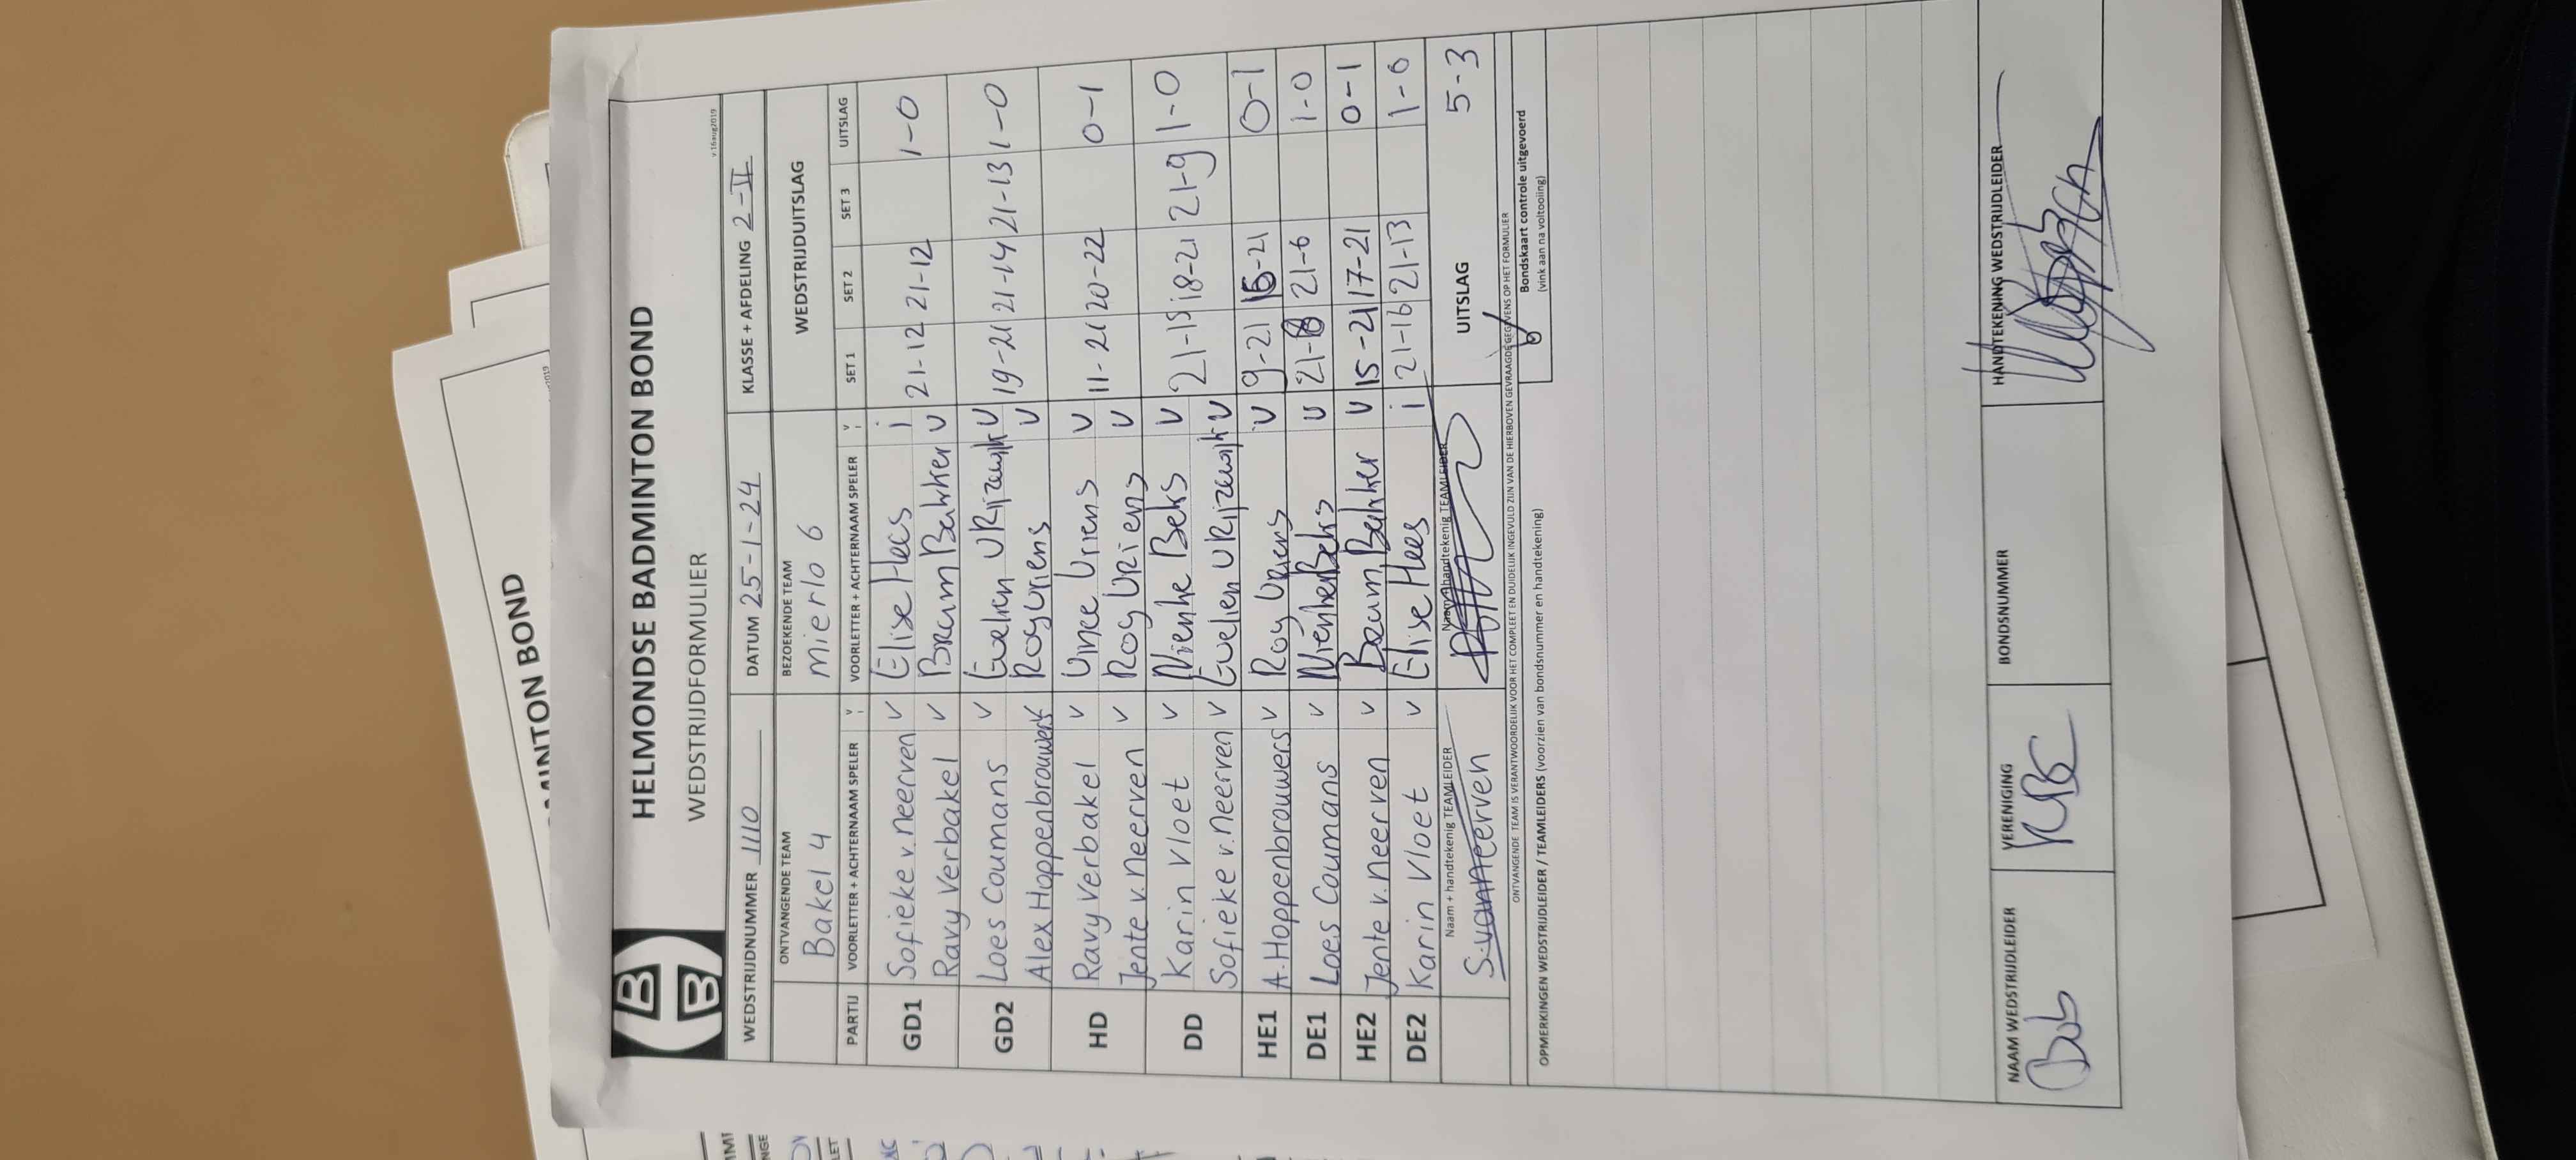 HELMONDSE BADMINTON BOND
WEDSTRIJDFORMULIER
v 16aug2019
WEDSTRIJDNUMMER 1110 DATUM 25-1-24 KLASSE + AFDELING 2-V
ONTVANGENDE TEAM BEZOEKENDE TEAM WEDSTRIJDUITSLAG
Bakel 4 Mierlo 6
PARTIJ VOORLETTER + ACHTERNAAM SPELER V I VOORLETTER + ACHTERNAAM SPELER V I SET 1 SET 2 SET 3 UITSLAG
GD1 Sofieke v. neerven V Elise Hees i 21-12 21-12 1-0
Ravy Verbakel V Bram Bakker V
GD2 Loes Coumans V Evelien v Rijzewijk V 19-21 21-14 21-13 1-0
Alex Hoppenbrouwers V Roy Vriens V
HD Ravy Verbakel V Vince Vriens V 11-21 20-22 0-1
Jente v. neerven V Roy Vriens V
DD Karin Vloet V Nienke Beks V 21-15 18-21 21-9 1-0
Sofieke v. neerven V Evelien v Rijzewijk V
HE1 A. Hoppenbrouwers V Roy Vriens V 9-21 15-21 0-1
DE1 Loes Coumans V Nienke Beks V 21-8 21-6 1-0
HE2 Jente v. neerven V Bram Bakker V 15-21 17-21 0-1
DE2 Karin Vloet V Elise Hees i 21-16 21-13 1-0
Naam + handtekenig TEAMLEIDER Naam + handtekenig TEAMLEIDER UITSLAG 5-3
S. van neerven
ONTVANGENDE TEAM IS VERANTWOORDELIJK VOOR HET COMPLEET EN DUIDELIJK INGEVULD ZIJN VAN DE HIERBOVEN GEVRAAGDE GEGEVENS OP HET FORMULIER
OPMERKINGEN WEDSTRIJDLEIDER / TEAMLEIDERS (voorzien van bondsnummer en handtekening)
Bondskaart controle uitgevoerd
(vink aan na voltooiing)
NAAM WEDSTRIJDLEIDER VERENIGING BONDSNUMMER HANDTEKENING WEDSTRIJDLEIDER
Bub
MINTON BOND